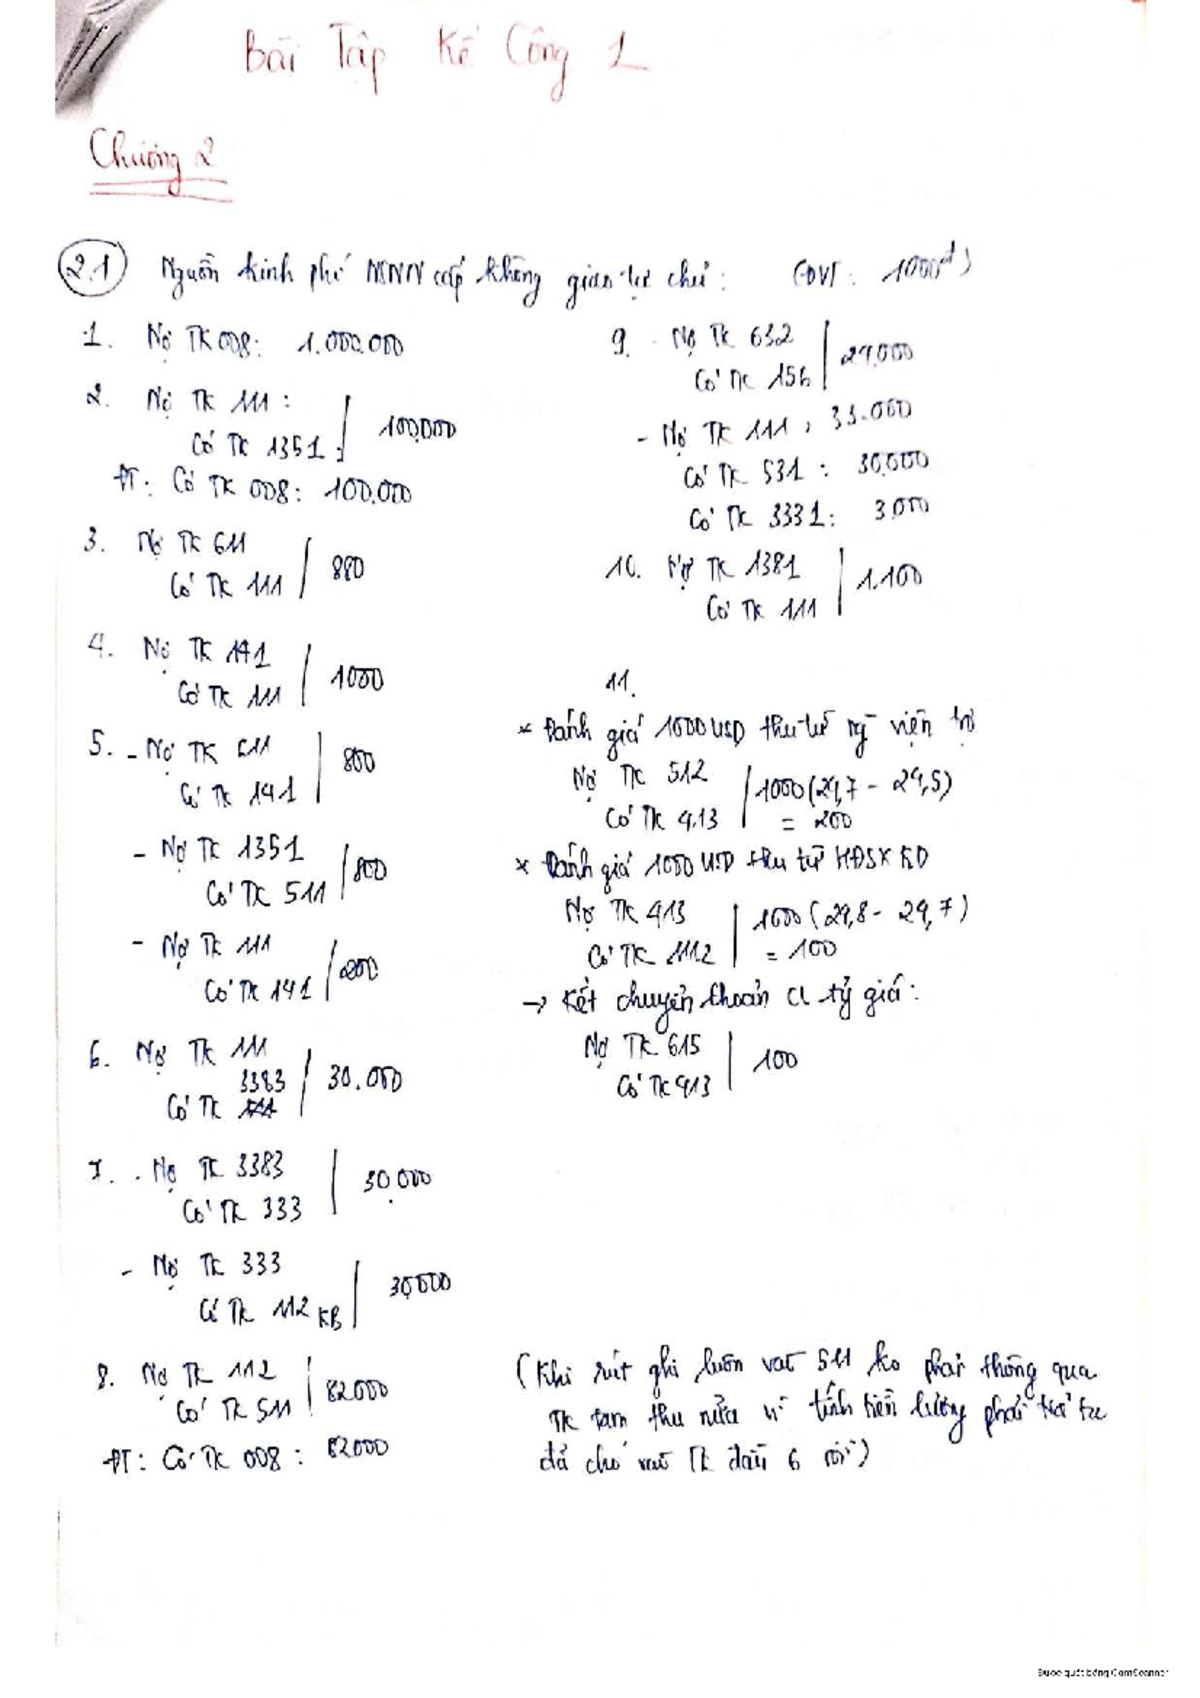 Bài Tập Kế Công 1
Chương 2
2.1 Nguồn kinh phí NSNN cấp không giao tự chủ: (ĐVT: 1000đ)
1. Nợ TK 008: 1.000.000
2. Nợ TK 111:
Có TK 1351: 100.000
ĐT: Có TK 008: 100.000
3. Nợ TK 611
Có TK 111 880
4. Nợ TK 141
Có TK 111 1000
5. - Nợ TK 611
Có TK 141 800
- Nợ TK 1351
Có TK 511 800
- Nợ TK 111
Có TK 141 200
6. Nợ TK 111
3383
Có TK 30.000
7. - Nợ TK 3383
Có TK 333 30.000
- Nợ TK 333
Có TK 112 KB 30,000
8. Nợ TK 112
Có TK 511 82000
ĐT: Có TK 008: 82000
9. - Nợ TK 632
Có TK 156
- Nợ TK 111: 33.000
Có TK 531: 30,000
Có TK 3331: 3,000
10. Nợ TK 1381
Có TK 111 1.100
11.
* Đánh giá 1000 USD thu từ viện trợ
Nợ TK 512
Có TK 413 1000 (24,7 - 24,5)
= 200
* Đánh giá 1000 USD thu từ HĐSXKD
Nợ TK 413
Có TK 1112 1000 (24,8 - 24,7)
= 100
→ Kết chuyển khoản CL tỷ giá:
Nợ TK 615
Có TK 413 100
(Khi rút ghi luôn vào 511 ko phải thông qua
TK tạm thu nữa vì tính tiền lương phải trả
đã cho vào TK đầu 6 rồi)
Được quét bằng CamScanner